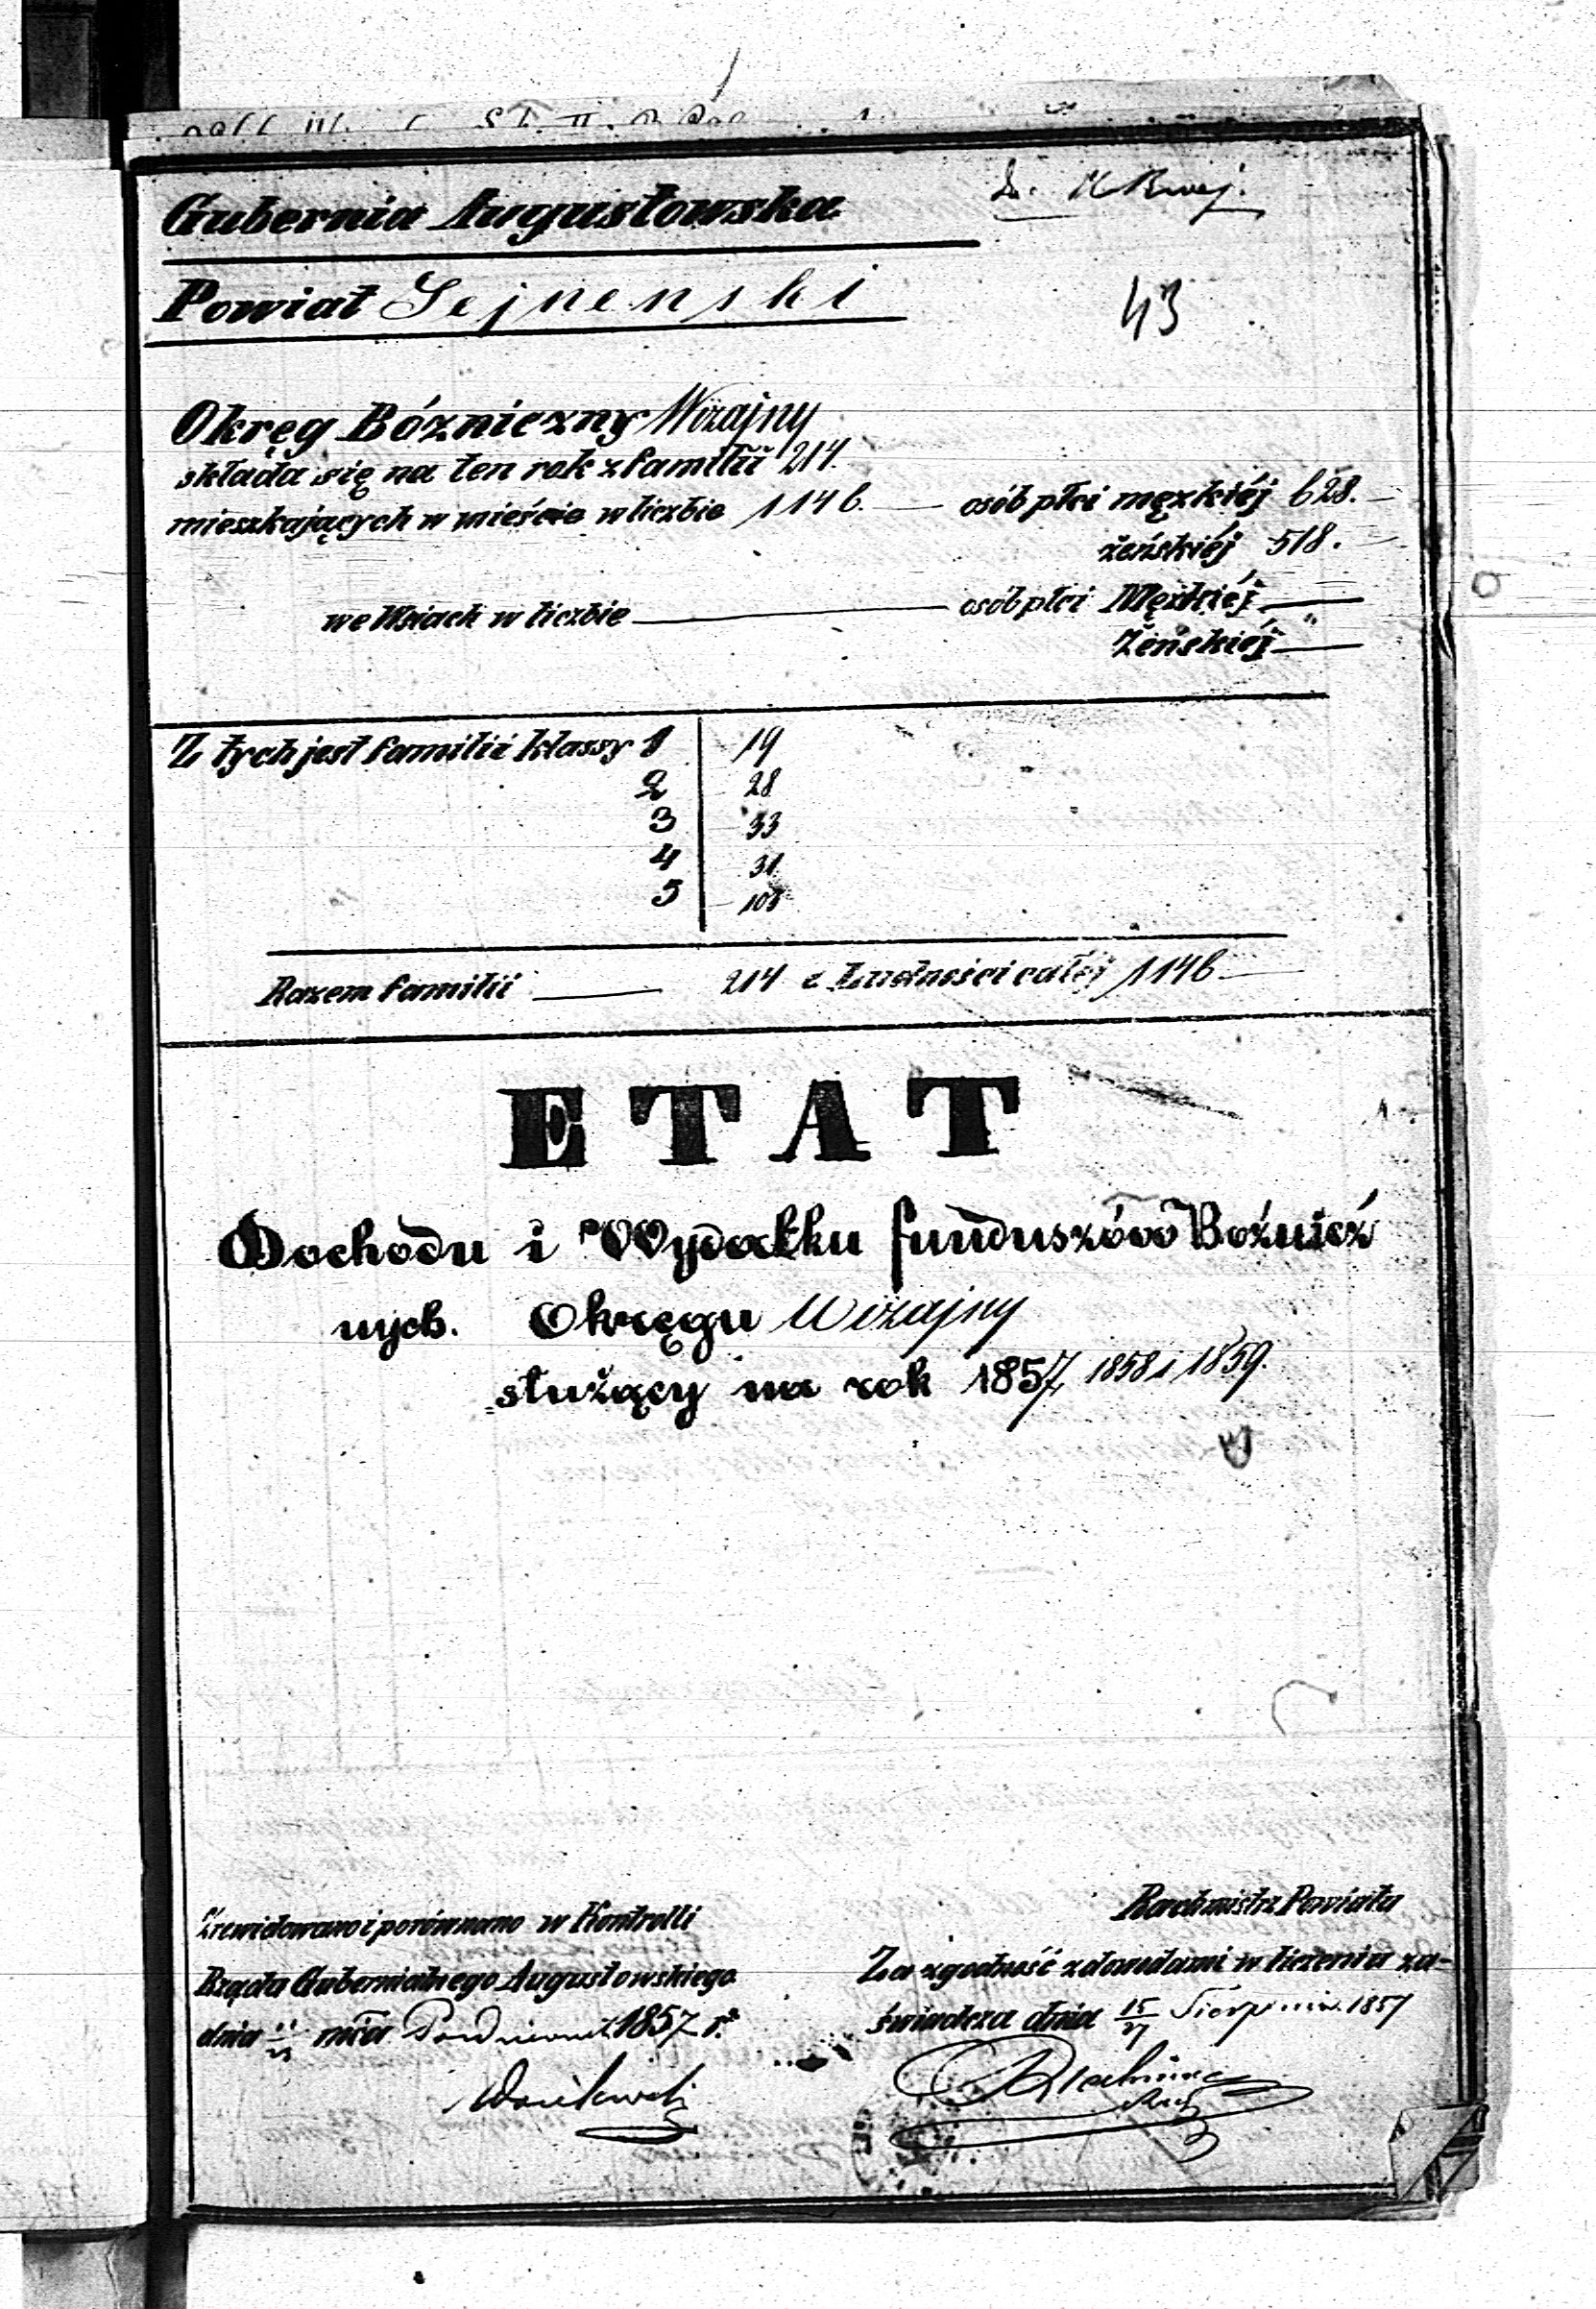 Gubernia Augustowska
Powiat Sejnenski
43
Okręg Bózniczny Wiżajny
składa się na ten rok z familii 214.
mieszkających w mieście w liczbie 1146. — osób płci męzkiéj 628. —
żeńskiéj 518. —
we Wsiach w liczbie — osób płci Męzkiéj —
Żeńskiéj —
Z tych jest familii klassy 1 19
2 28
3 33
4 31
5 103
Razem familii — 214 z Ludności całéj 1146 —
ETAT
Dochodu i Wydatku funduszów Bożnicz
nych. Okręgu Wiżajny
służący na rok 1857, 1858 i 1859.
Zrewidowano i porównano w Kontrolli
Rachmistrz Powiatu
Rządu Gubernialnego Augustowskiego
Za zgodność z dowodami w liczeniu za-
dnia mca 1857 r.
świadcza dnia 15/27 Sierpnia 1857